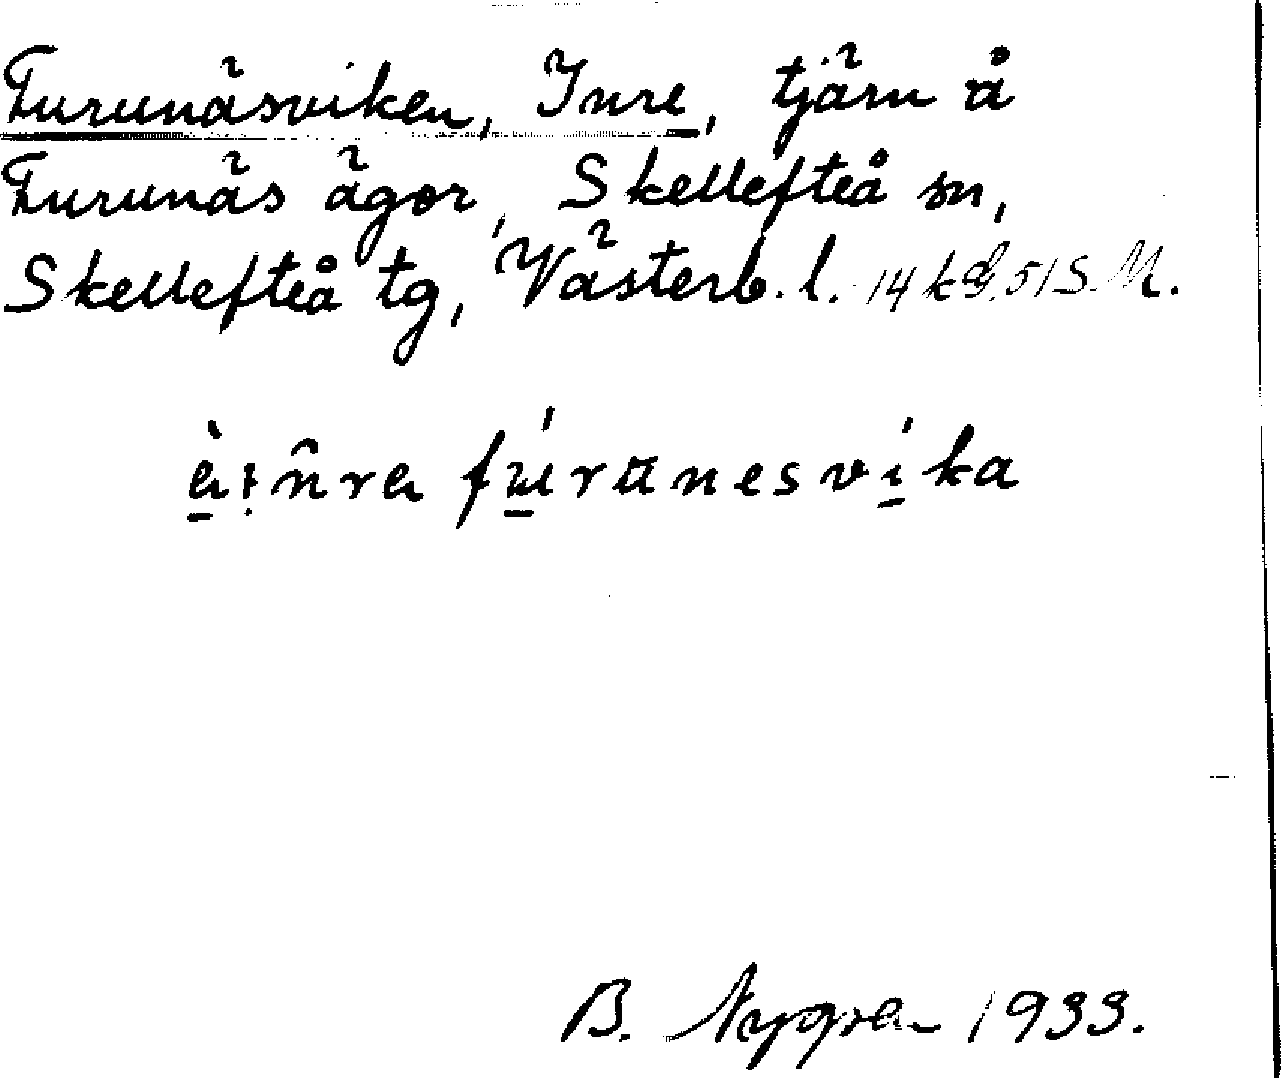 Furunäsviken, Inre, tjärn å
Furunäs ägor, Skellefteå sn,
Skellefteå tg, Västerb. l. 14 kd. 51 S. M.
furunesvika
B. 1933.